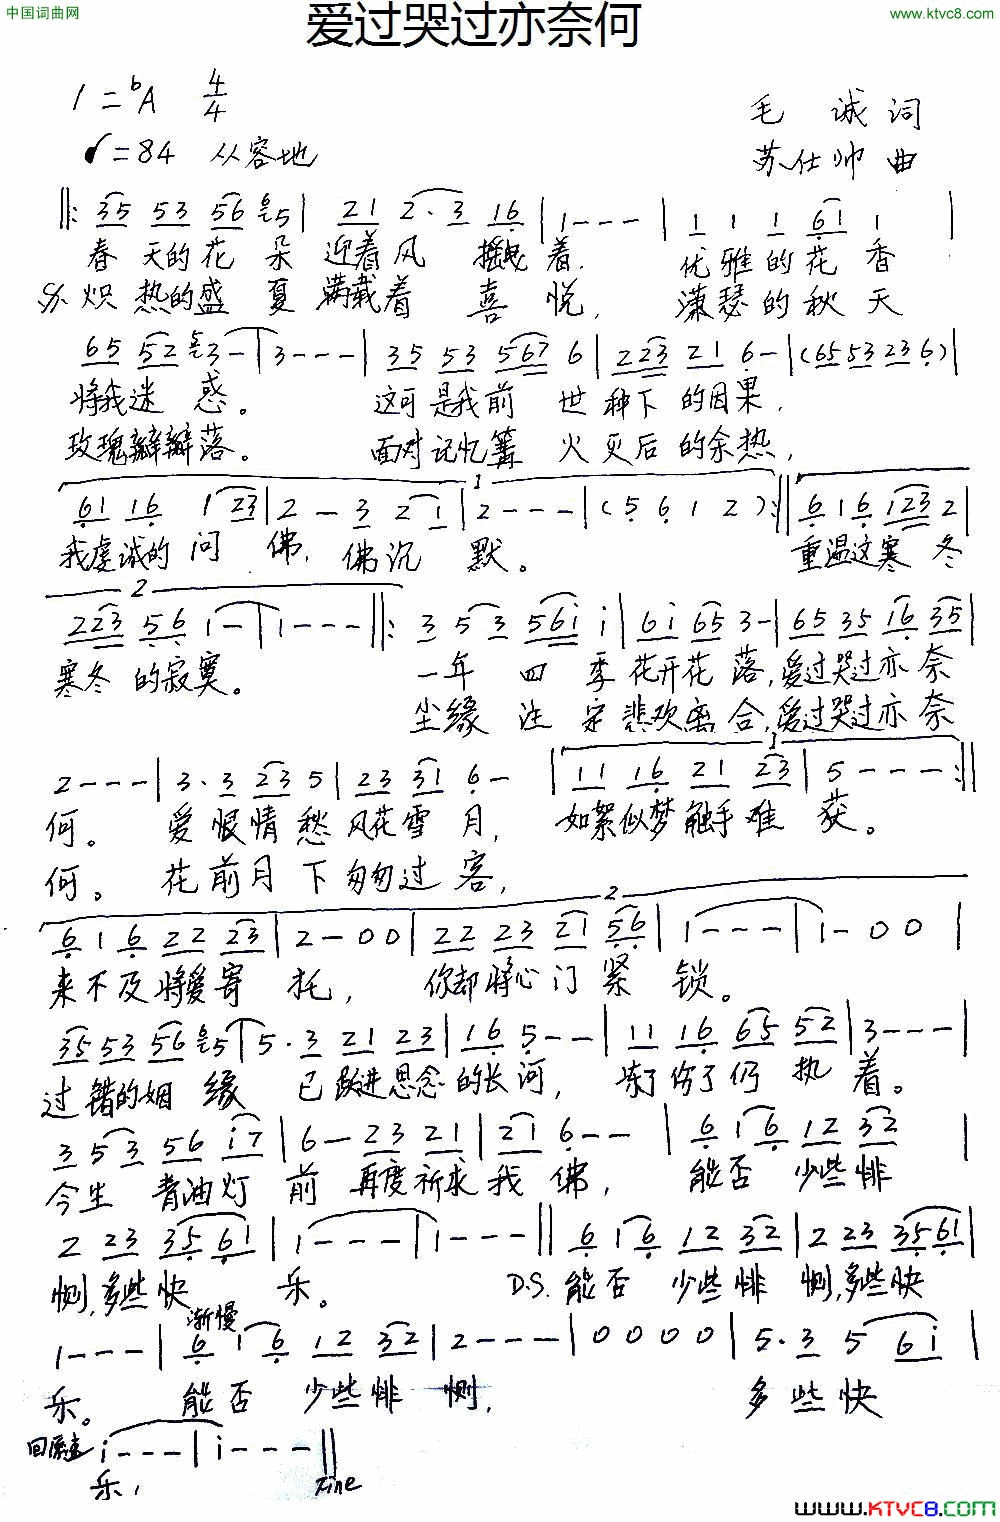 中国词曲网
www.ktvc8.com
爱过哭过亦奈何
1=bA 4/4
毛 诚 词
♩=84 从容地
苏仕帅 曲
‖: 35 53 56 65 | 21 2·3 16 | 1--- | 1 1 1 61 1 |
春 天的花 朵 迎着风 摇曳着, 优雅的花香
𝄋 炽 热的盛 夏 满载着 喜 悦, 潇瑟的秋天
65 52 53- | 3--- | 35 53 567 6 | 223 21 6- | (65 53 23 6) |
将我迷 惑。 这可是我前 世 种下 的因果,
玫瑰瓣瓣落。 面对记忆篝 火 灭后 的余热,
1
61 16 1 23 | 2-3 21 | 2--- | (5 6 1 2) :‖ 6 1 6 123 2 |
我虔诚的 问 佛, 佛沉 默。 重温这寒 冬
2
223 56 1- | 1--- ‖: 3 53 561 1 | 61 65 3- | 65 35 16 35 |
寒冬 的寂寞。 一年 四 季 花开花 落, 爱过哭过亦奈
尘缘 注 定 悲欢离 合, 爱过哭过亦奈
1
2--- | 3·3 23 5 | 23 31 6- | 11 16 21 23 | 5--- :‖
何。 爱 恨情 愁 风花雪 月, 如絮似梦触手难 获。
何。 花 前月 下 匆匆过 客,
2
6 1 6 22 23 | 2-00 | 22 23 21 56 | 1--- | 1-00 |
来不及将爱寄 托, 你却将心门 紧 锁。
35 53 56 65 | 5·3 21 23 | 16 5-- | 11 16 65 52 | 3--- |
过 错的姻 缘 已跃进思念的长河, 冻了伤了仍 执 着。
3 53 56 17 | 6- 23 21 | 21 6-- | 6 16 12 32 |
今生 青油灯 前 再度祈求 我 佛, 能否 少些悱
2 23 35 61 | 1--- | 1--- ‖ 6 16 12 32 | 2 23 35 61 |
恻,多些快 乐。 D.S. 能否 少些悱 恻,多些快
渐慢
1--- | 6 16 12 32 | 2--- | 0000 | 5·3 5 61 |
乐。 能否 少些悱 恻, 多些快
回原速 1--- | 1--- ‖
乐, Fine
www.KTVC8.com